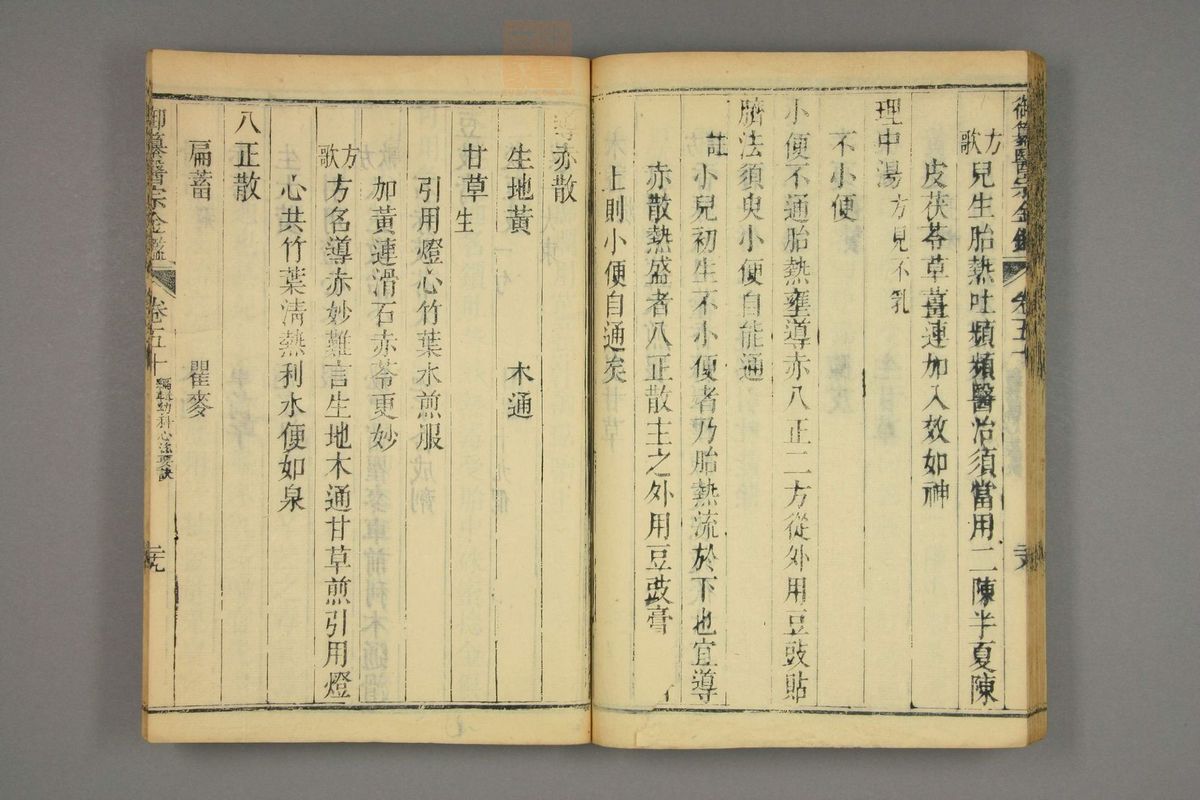 方歌 兒生胎熱吐頻頻醫治須當用二陳半夏陳
皮茯苓草薑連加入效如神
理中湯方見不乳
不小便
小便不通胎熱壅導赤八正二方從外用豆豉貼
臍法須臾小便自能通
註 小兒初生不小便者乃胎熱流於下也宜導
赤散熱盛者八正散主之外用豆豉膏
上則小便自通矣
導赤散
生地黃 木通
甘草生
引用燈心竹葉水煎服
方歌 方名導赤妙難言生地木通甘草煎引用燈
加黃連滑石赤苓更妙
心共竹葉清熱利水便如泉
八正散
扁蓄 瞿麥
御纂醫宗金鑑 卷五十 編輯幼科心法要訣 二十九